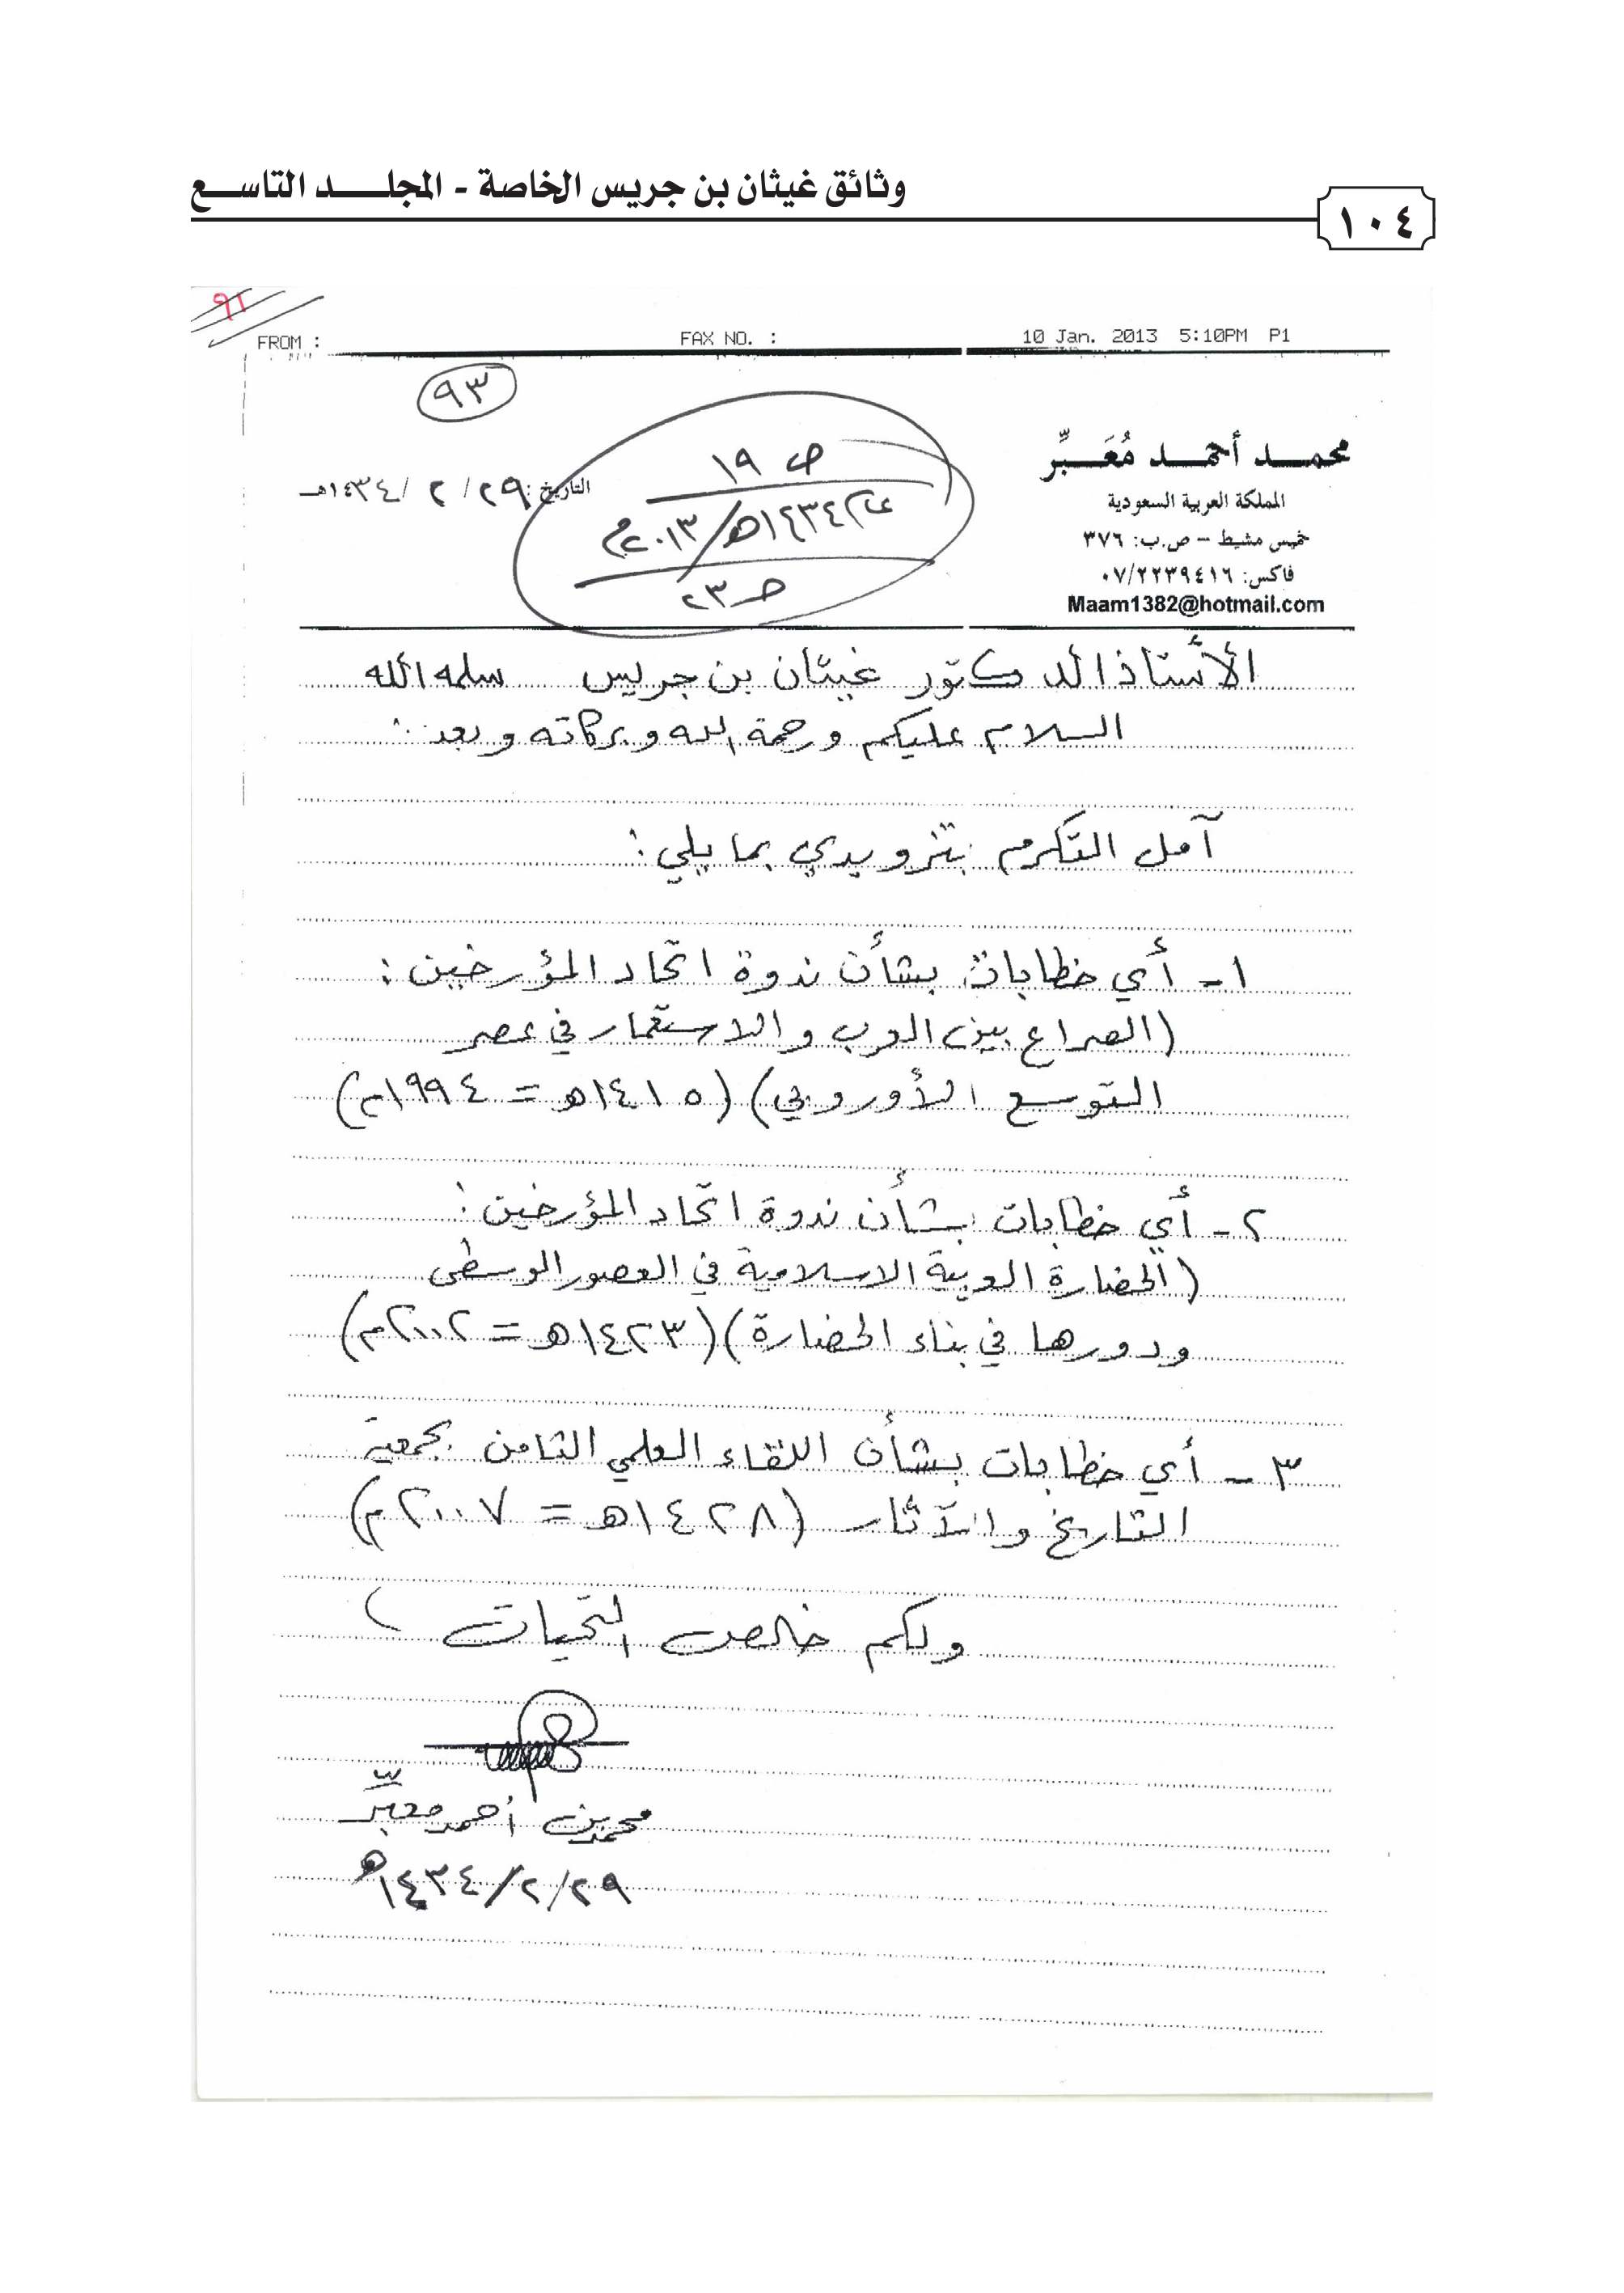 وثائق غيثان بن جريس الخاصة - المجلد التاسع
١٠٤
٩١
FROM : FAX NO. : 10 Jan. 2013 5:10PM P1
٩٣
محمد أحمد مُعَبِّر
المملكة العربية السعودية
خميس مشيط – ص.ب: ٣٧٦
فاكس: ٠٧/٢٢٣٩٤١٦
Maam1382@hotmail.com
ص ١٩
عام ١٤٣٤هـ/٢٠١٣م
صـ ٢٣
التاريخ: ٢٩/ ٢ /١٤٣٤هـ
الأستاذ الدكتور غيثان بن جريس سلمه الله
السلام عليكم ورحمة الله وبركاته وبعد:
آمل التكرم بتزويدي بما يلي:
١- أي خطابات بشأن ندوة اتحاد المؤرخين:
(الصراع بين العرب والاستعمار في عصر
التوسع الأوروبي) (١٤١٥هـ = ١٩٩٤م)
٢- أي خطابات بشأن ندوة اتحاد المؤرخين:
(الحضارة العربية الاسلامية في العصور الوسطى
ودورها في بناء الحضارة) (١٤٢٣هـ = ٢٠٠٢م)
٣- أي خطابات بشأن اللقاء العلمي الثامن بجمعية
التاريخ والآثار (١٤٢٨هـ = ٢٠٠٧م)
ولكم خالص التحيات
محمد بن أحمد معبّر
٢٩/٢/١٤٣٤هـ